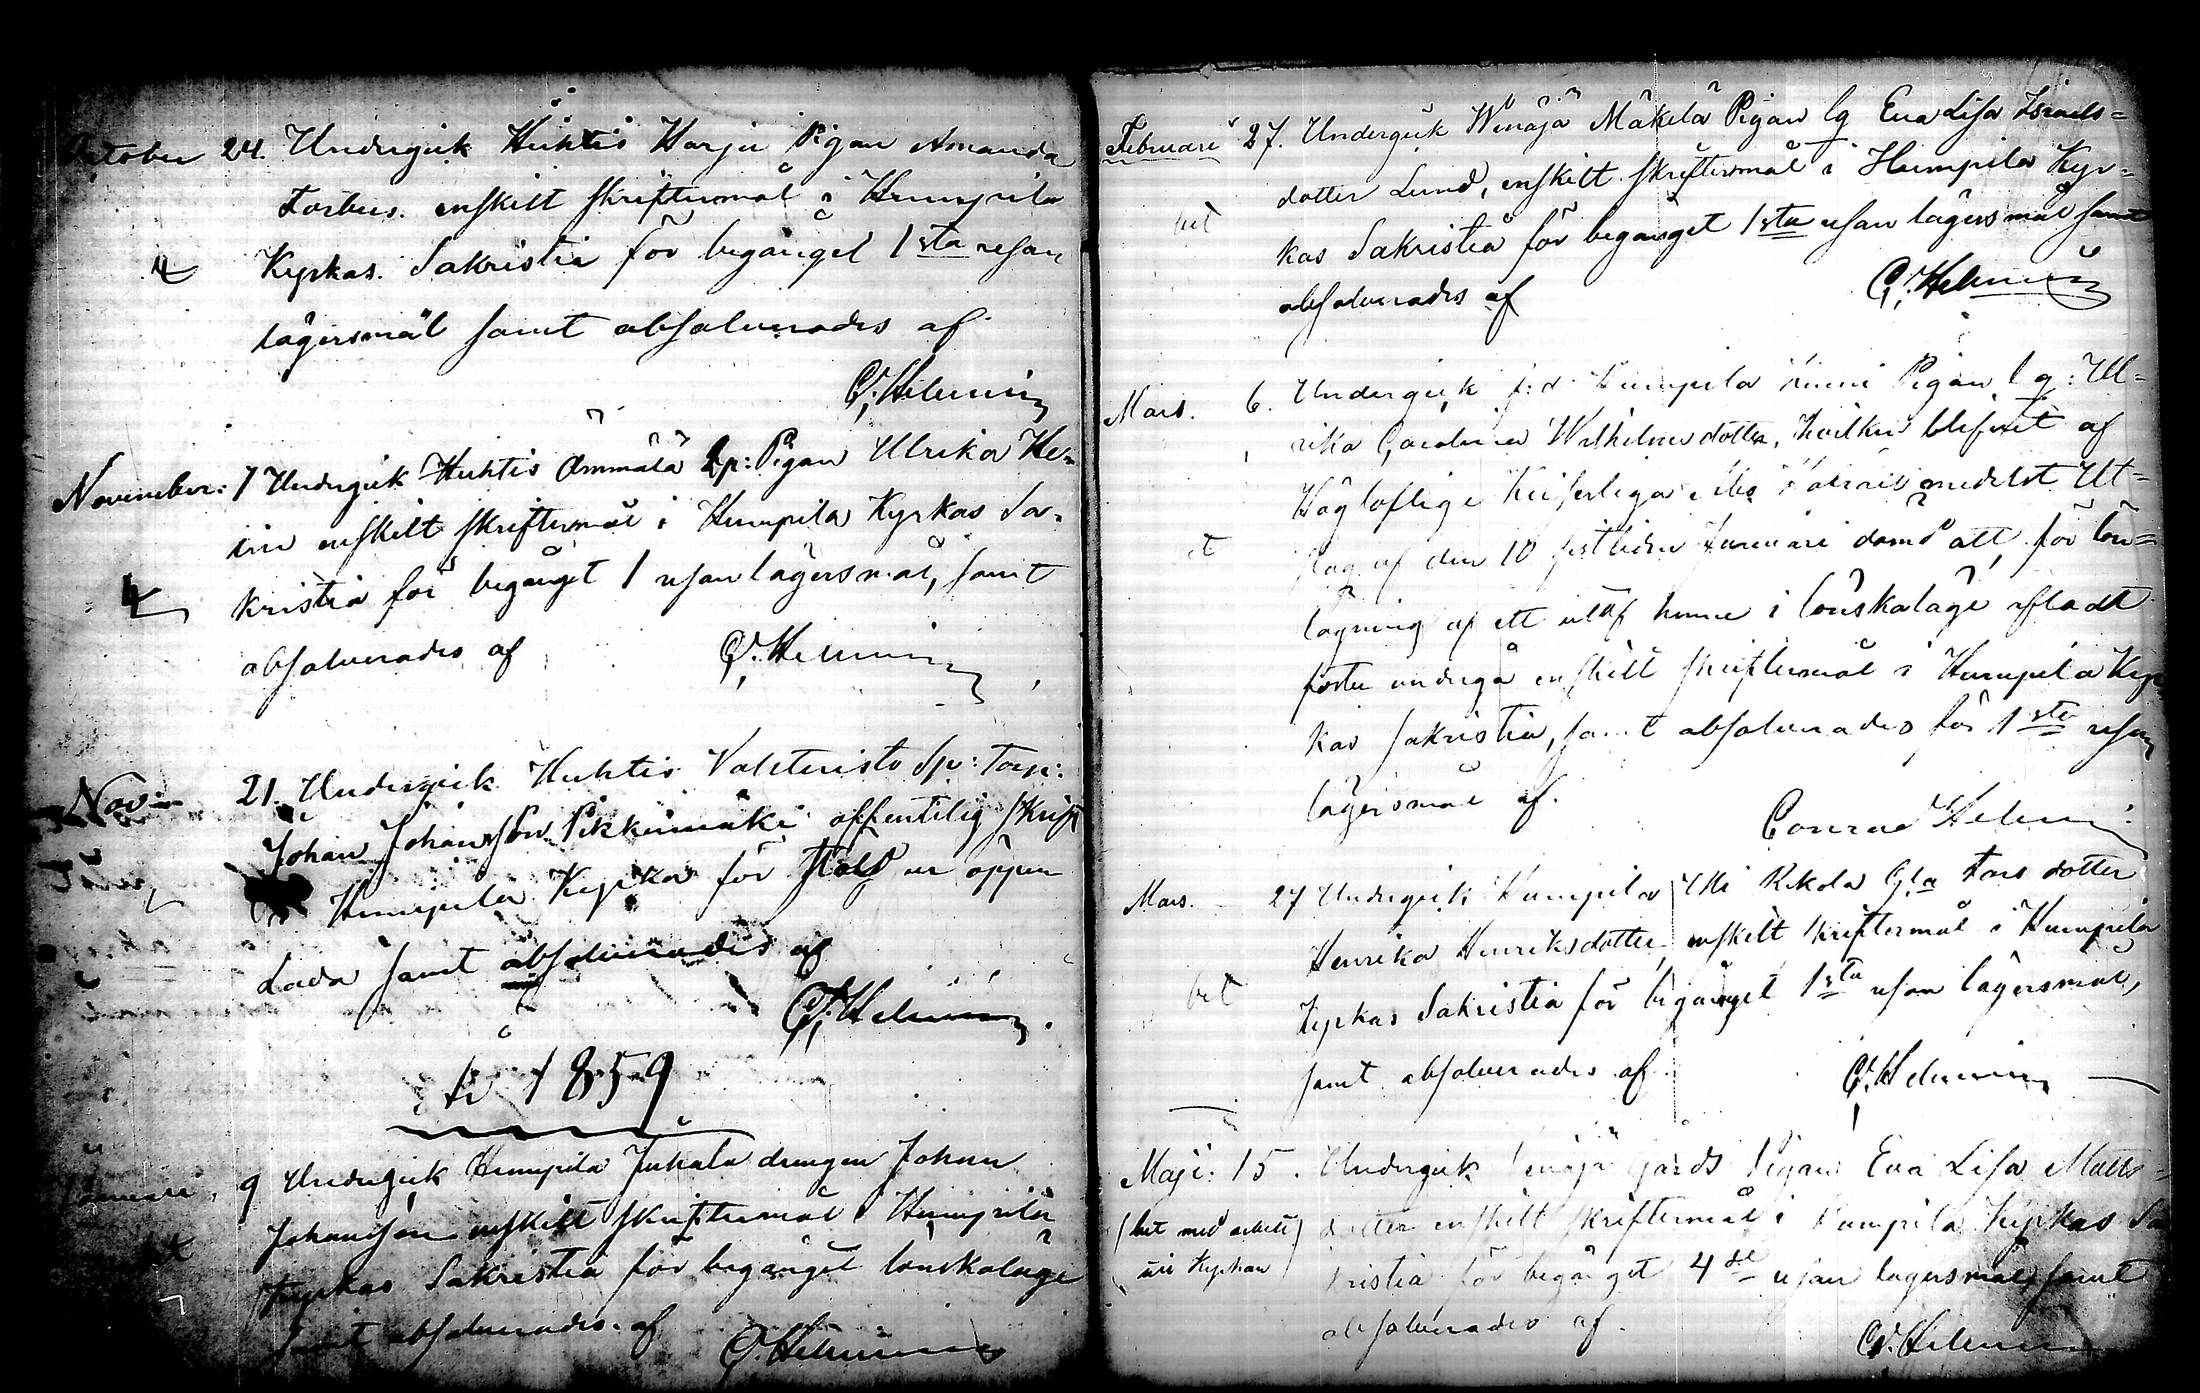 October 24. Undergick Huhtis Harju Pigan Amanda
Forbus. enskilt skriftermål i Humpila
Kyrkas. Sakristia för begånget 1sta resan
lägersmål samt absolverades af
C. Helenius
November: 7 Undergick Huhtis Ämmälä Sp: Pigan Ulrika He-
enskilt skriftermål i Humpila Kyrkas Sa-
kristia för begånget 1 resan lägersmål, samt
absolverades af C. Helenius
Nov 21. Undergick Huhtis Valsteristo Sp: Torp:
Johan Johansson Pikkumäki offentelig skrift
Humpila Kyrka för stöld ur öppen
Lada samt absolverades af
C. Helenius
År 1859
Januari, 9 Undergick Humpila Juhala drengen Johan
Johansson enskilt skriftermål i Humpila
Kyrkas Sakristia för begånget lönskaläge
samt absolverades af C. Helenius
Februari 27. Undergick Wenäjä Mäkelä Pigan lg Eva Lisa Israels=
dotter Lund, enskilt skriftermål i Humpila Kyr=
bet
kas Sakristia för begånget 1sta resan lägersmål samt
absolverades af C. Helenius
Mars. 6. Undergick f:d: Humpila Pigan lg: Ul=
rika Carolina Wilhelmsdotter, hvilken blifvit af
Högloflige Keiserliga Åbo Hofrätt medelst Ut=
slag af den 10 sistliden Januari dömd att för lön=
läggning af ett utaf henne i lönskaläge afladt
foster undergå enskilt skriftermål i Humpila Kyr
kas sakristia, samt absolverades för 1sta resan
lägersmål af.
Conrad Helenius
Mars. 27 Undergick Humpila Uti Kekola Gla Tors dotter
Henrika Henriksdotter enskilt skriftermål i Humpila
bet
Kyrkas Sakristia för begånget 1sta resan lägersmål,
samt absolverades af C. Helenius
Maji: 15. Undergick Wenäjä Gårds Pigan Eva Lisa Matts=
(bet med arbete
dotter enskilt skriftermål i Humpila Kyrkas Sa
vid Kyrkan)
kristia för begånget 4de resan lägersmål, samt
absolverades af.
C. Helenius